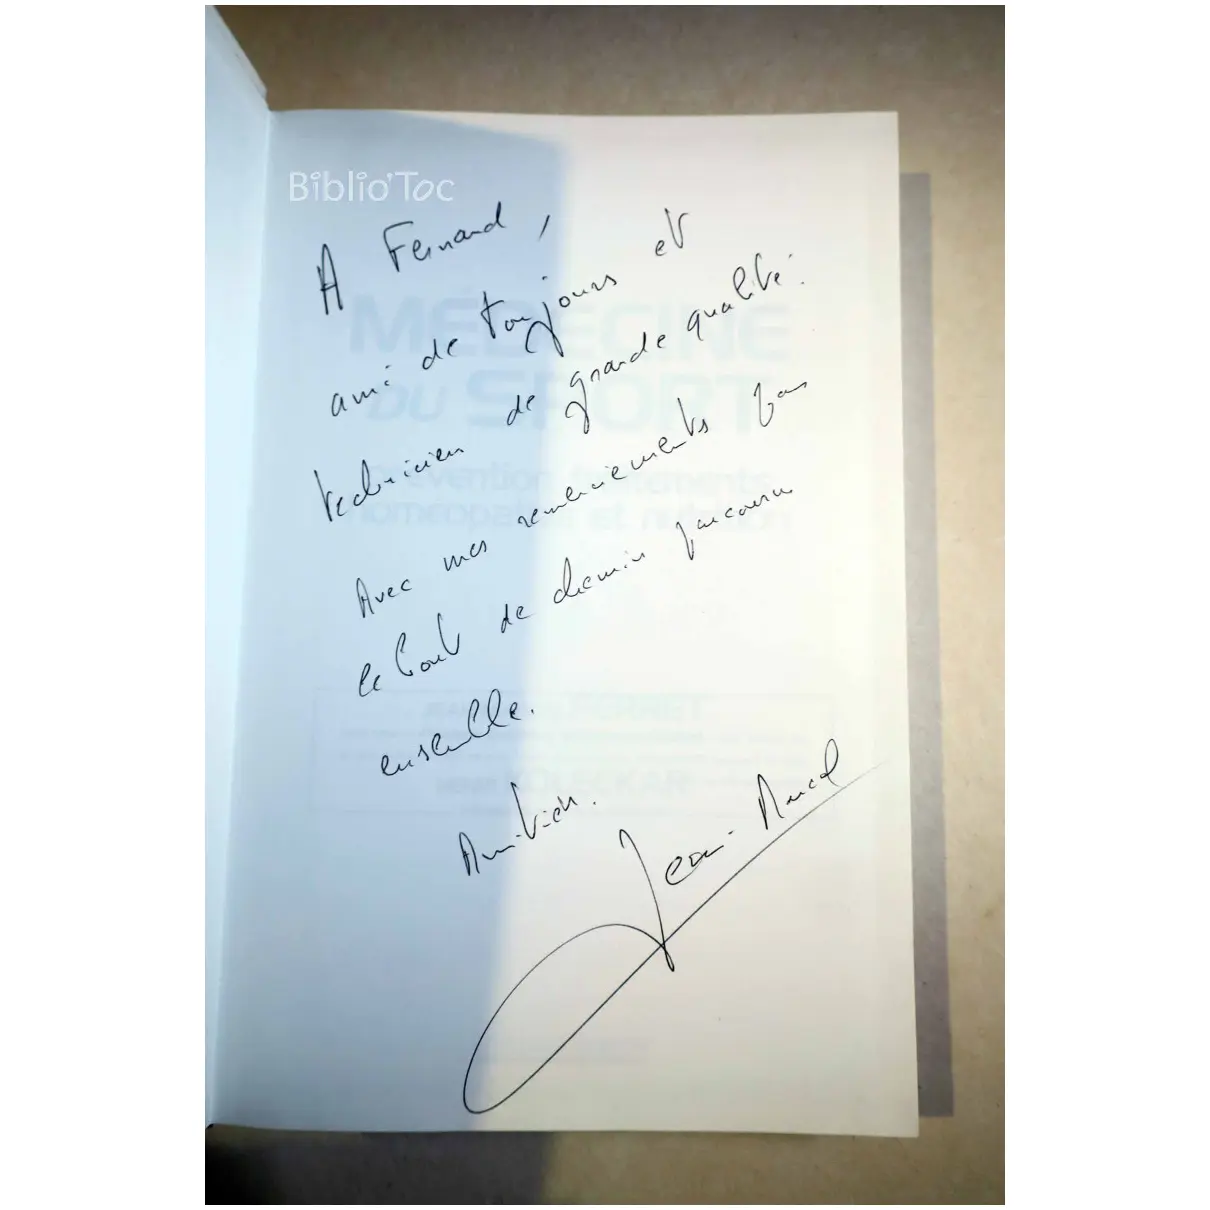 Biblio'Toc
A Fernand,
ami de toujours et
technicien de grande qualité.
Avec mes remerciements pour
le bout de chemin parcouru
ensemble.
Amitiés.
Jean-Marcel
MÉDECINE
DU SPORT
prévention traitements
homéopathie et nutrition
FERRET